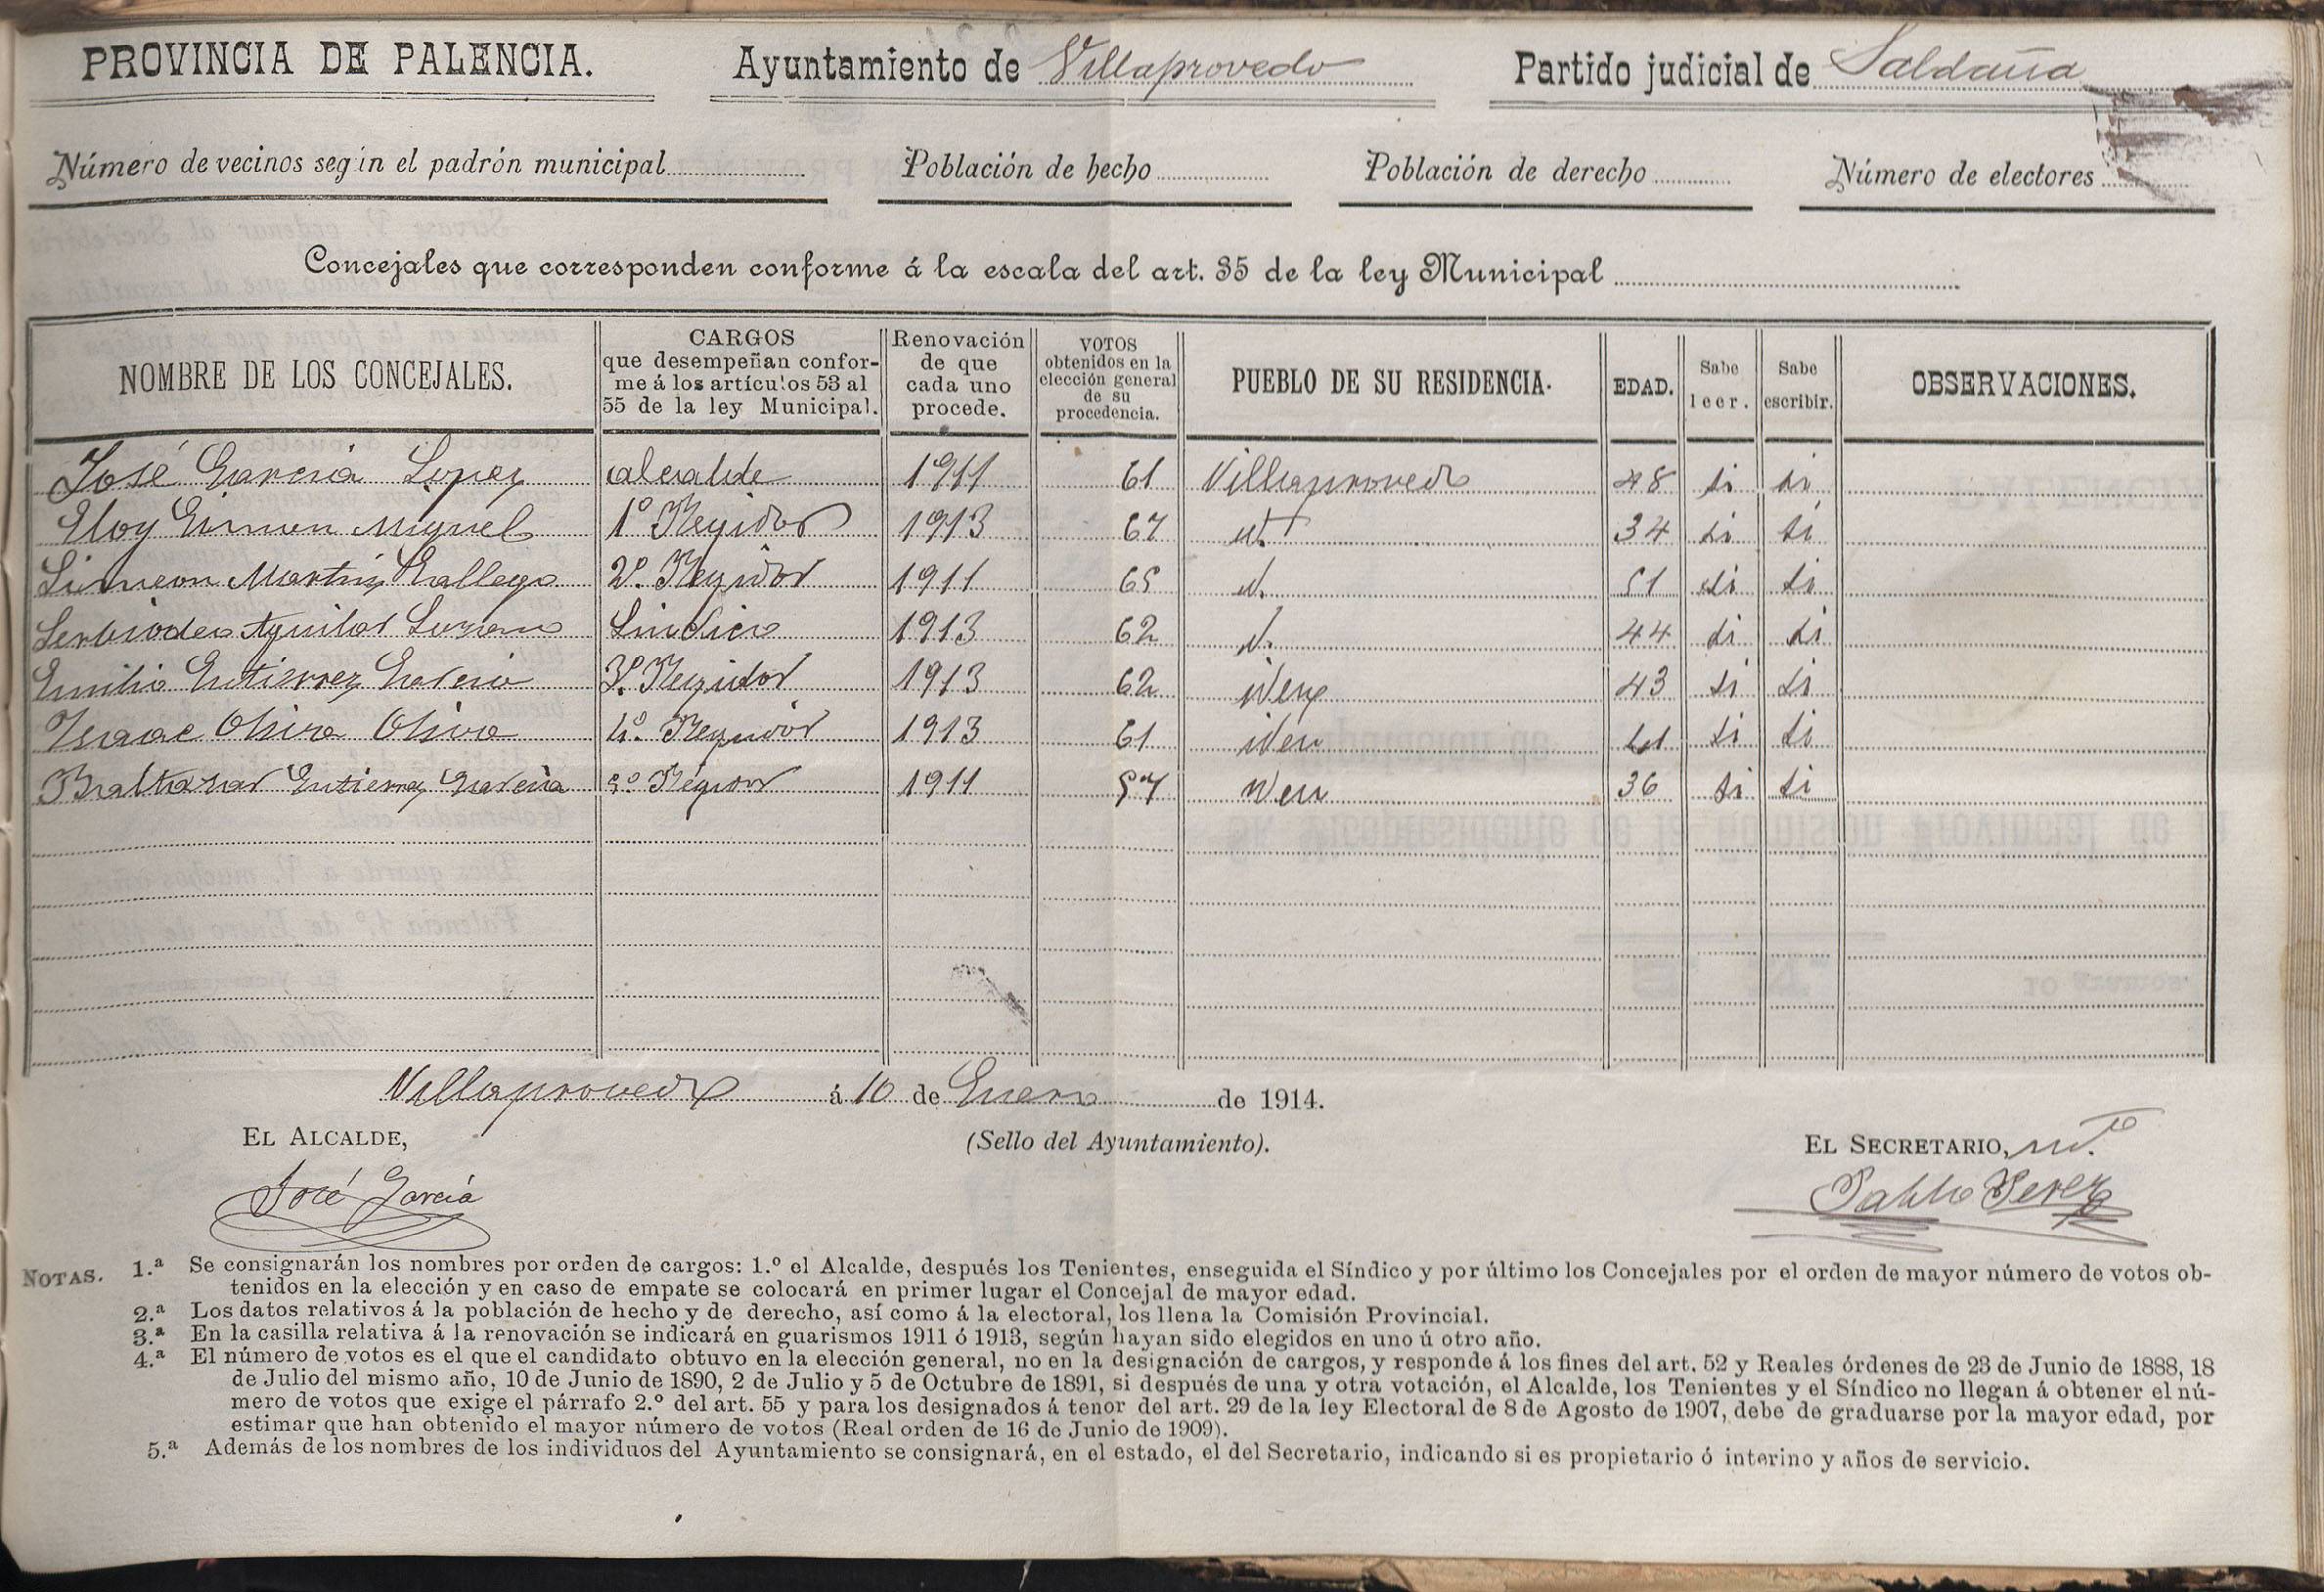 PROVINCIA DE PALENCIA. Ayuntamiento de Villaprovedo Partido judicial de Saldaña
Número de vecinos según el padrón municipal Población de hecho Población de derecho Número de electores
Concejales que corresponden conforme á la escala del art. 35 de la ley Municipal
NOMBRE DE LOS CONCEJALES. CARGOS que desempeñan confor-me á los artículos 53 al 55 de la ley Municipal. Renovación de que cada uno procede. VOTOS obtenidos en la elección general de su procedencia. PUEBLO DE SU RESIDENCIA. EDAD. Sabe leer. Sabe escribir. OBSERVACIONES.
José Garcia Lopez alcalde 1911 61 Villaprovedo 48 si si
Eloy Simon Miguel 1º Regidor 1913 67 id. 34 si si
Simeon Martin Gallego 2º Regidor 1911 65 id. 51 si si
Aguilar Sindico 1913 62 id. 44 si si
Emilio Gutierrez Garcia 3º Regidor 1913 62 idem 43 si si
Isaac Oliva Oliva 4º Regidor 1913 61 idem 41 si si
Baltasar Gutierrez Garcia 5º Regidor 1911 57 idem 36 si si
Villaprovedo á 10 de Enero de 1914.
EL ALCALDE, (Sello del Ayuntamiento). EL SECRETARIO,
José García Pablo Perez
NOTAS. 1.ª Se consignarán los nombres por orden de cargos: 1.º el Alcalde, después los Tenientes, enseguida el Síndico y por último los Concejales por el orden de mayor número de votos ob-
tenidos en la elección y en caso de empate se colocará en primer lugar el Concejal de mayor edad.
2.ª Los datos relativos á la población de hecho y de derecho, así como á la electoral, los llena la Comisión Provincial.
3.ª En la casilla relativa á la renovación se indicará en guarismos 1911 ó 1913, según hayan sido elegidos en uno ú otro año.
4.ª El número de votos es el que el candidato obtuvo en la elección general, no en la designación de cargos, y responde á los fines del art. 52 y Reales órdenes de 23 de Junio de 1888, 18
de Julio del mismo año, 10 de Junio de 1890, 2 de Julio y 5 de Octubre de 1891, si después de una y otra votación, el Alcalde, los Tenientes y el Síndico no llegan á obtener el nú-
mero de votos que exige el párrafo 2.º del art. 55 y para los designados á tenor del art. 29 de la ley Electoral de 8 de Agosto de 1907, debe de graduarse por la mayor edad, por
estimar que han obtenido el mayor número de votos (Real orden de 16 de Junio de 1909).
5.ª Además de los nombres de los individuos del Ayuntamiento se consignará, en el estado, el del Secretario, indicando si es propietario ó interino y años de servicio.